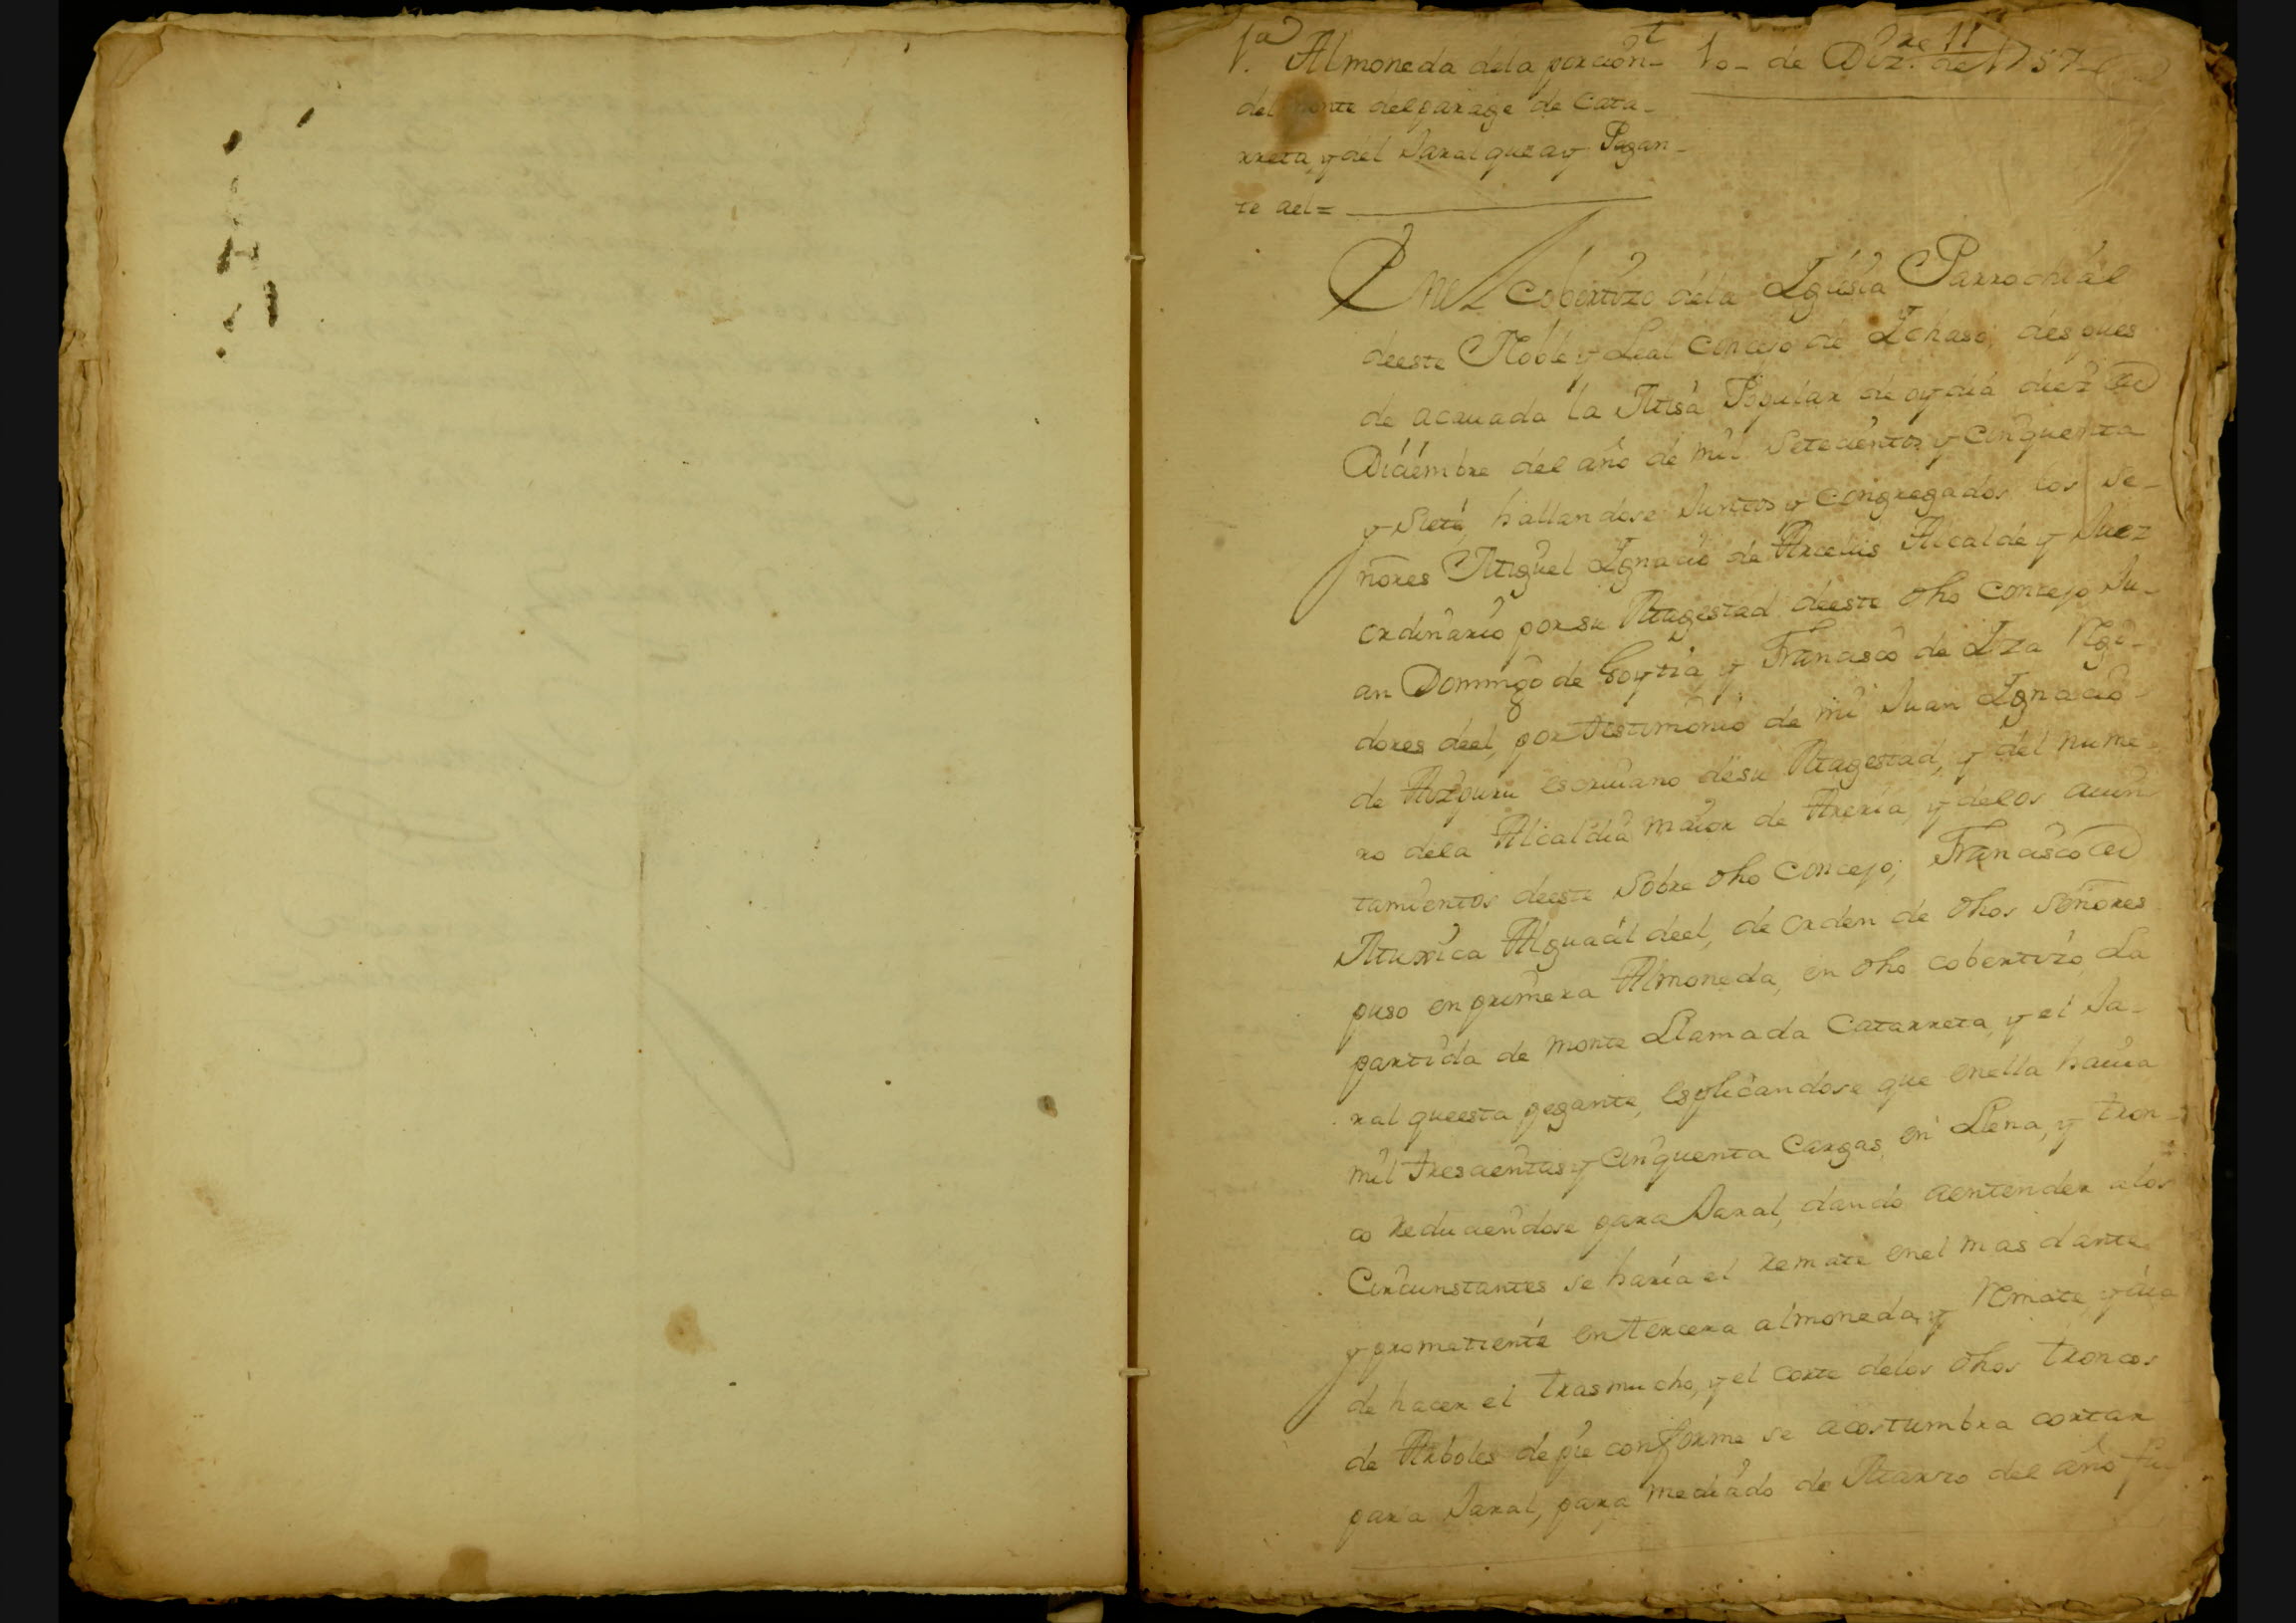 1.ª Almoneda dela porcion
del monte del parage de Cata-
rreta, y del Jaral que ay Pegan-
te ael =
10- de Diz.re 11 de 1757
Enel Cobertizo dela Iglesia Parrochial
deeste Noble y Leal Concejo de Ichaso, despues
de acavada la Missa Popular de oy dia diez de
Diciembre del año de mil Setecientos y Cinquenta
y Siete, hallandose Juntos y Congregados los Se-
ñores Miguel Ignacio de Arcelus Alcalde y Juez
ordinario por su Magestad deeste dho Concejo Ju-
an Domingo de Goytia, y Francisco de Iza Regi-
dores deel, por testimonio de mi Juan Ignacio
de Aizpuru escrivano desu Magestad, y del nume
ro dela Alcaldia maior de Areria, y delos aiun
tamientos deeste Sobre dho Concejo; Francisco de
Muxica Alguacil deel, de orden de dhos Señores
puso en primera Almoneda, en dho cobertizo, La
partida de monte Llamada Catarreta, y el Ja-
ral queesta pegante, esplicandose que enella havia
mil trescientas y Cinquenta Cargas, en Lena, y tron-
co reduciendose para Jaral, dando aentender alos
Circunstantes se haria el remate enel mas dante
y prometiente en tercera almoneda, y Remate, y dia
de hacer el trasmucho, y el corte delos dhos troncos
de Arboles de pie conforme se acostumbra cortar
para Jaral, para mediado de Marzo del año fu-